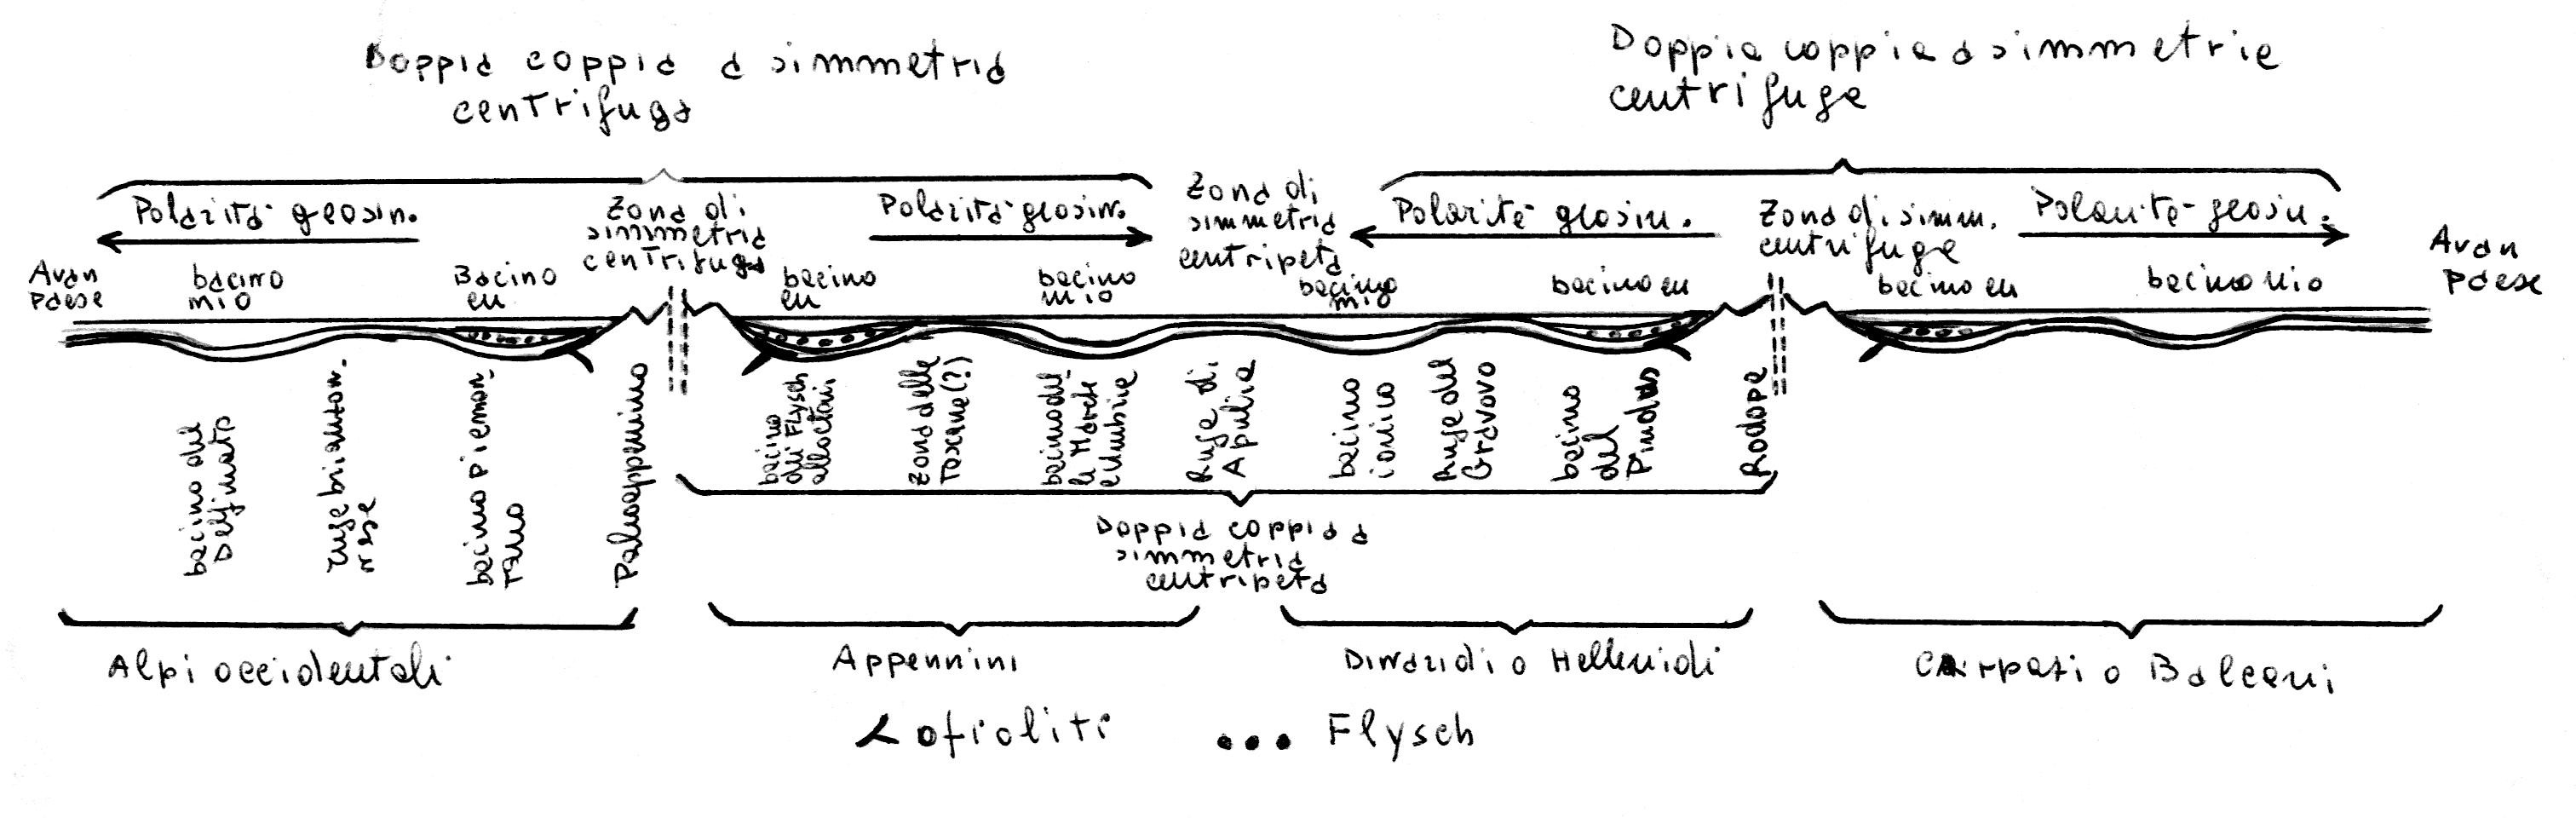 Doppia coppia a simmetria
centrifuga
Doppia coppia a simmetrie
centrifuge
Polarità geosin.
Zona di
simmetria
centrifuga
Polarità geosin.
Zona di
simmetria
centripeta
Polarità geosin.
Zona di simm.
centrifuga
Polarità geosin.
Avan
paese
bacino
mio
Bacino
eu
bacino
eu
bacino
mio
bacino
mio
bacino eu
bacino eu
bacino mio
Avan
paese
bacino del
Delfinato
ruga brianzon.
nese
bacino piemon.
tano
Paleoappennino
bacino
dei Flysch
alloctoni
zona delle
Toscane(?)
bacino del
la Marche
e umbria
Ruga di
Apulia
bacino
ionico
Ruga del
Gravovo
bacino
del
Pindos
Rodope
Doppia coppia a
simmetria
centripeta
Alpi occidentali
Appennini
Dinaridi o Hellenidi
Carpazi o Balcani
ofioliti
Flysch